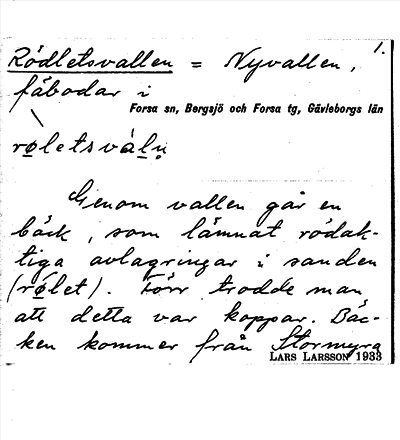 1.
Rödletsvallen = Nyvallen,
fäbodar i
Forsa sn, Bergsjö och Forsa tg, Gävleborgs län
røletsvàlṇ
Genom vallen går en
bäck, som lämnat rödak-
tiga avlagringar i sanden
(rølet). Förr trodde man
att detta var koppar. Bäc-
ken kommer från Stormyra
LARS LARSSON 1933